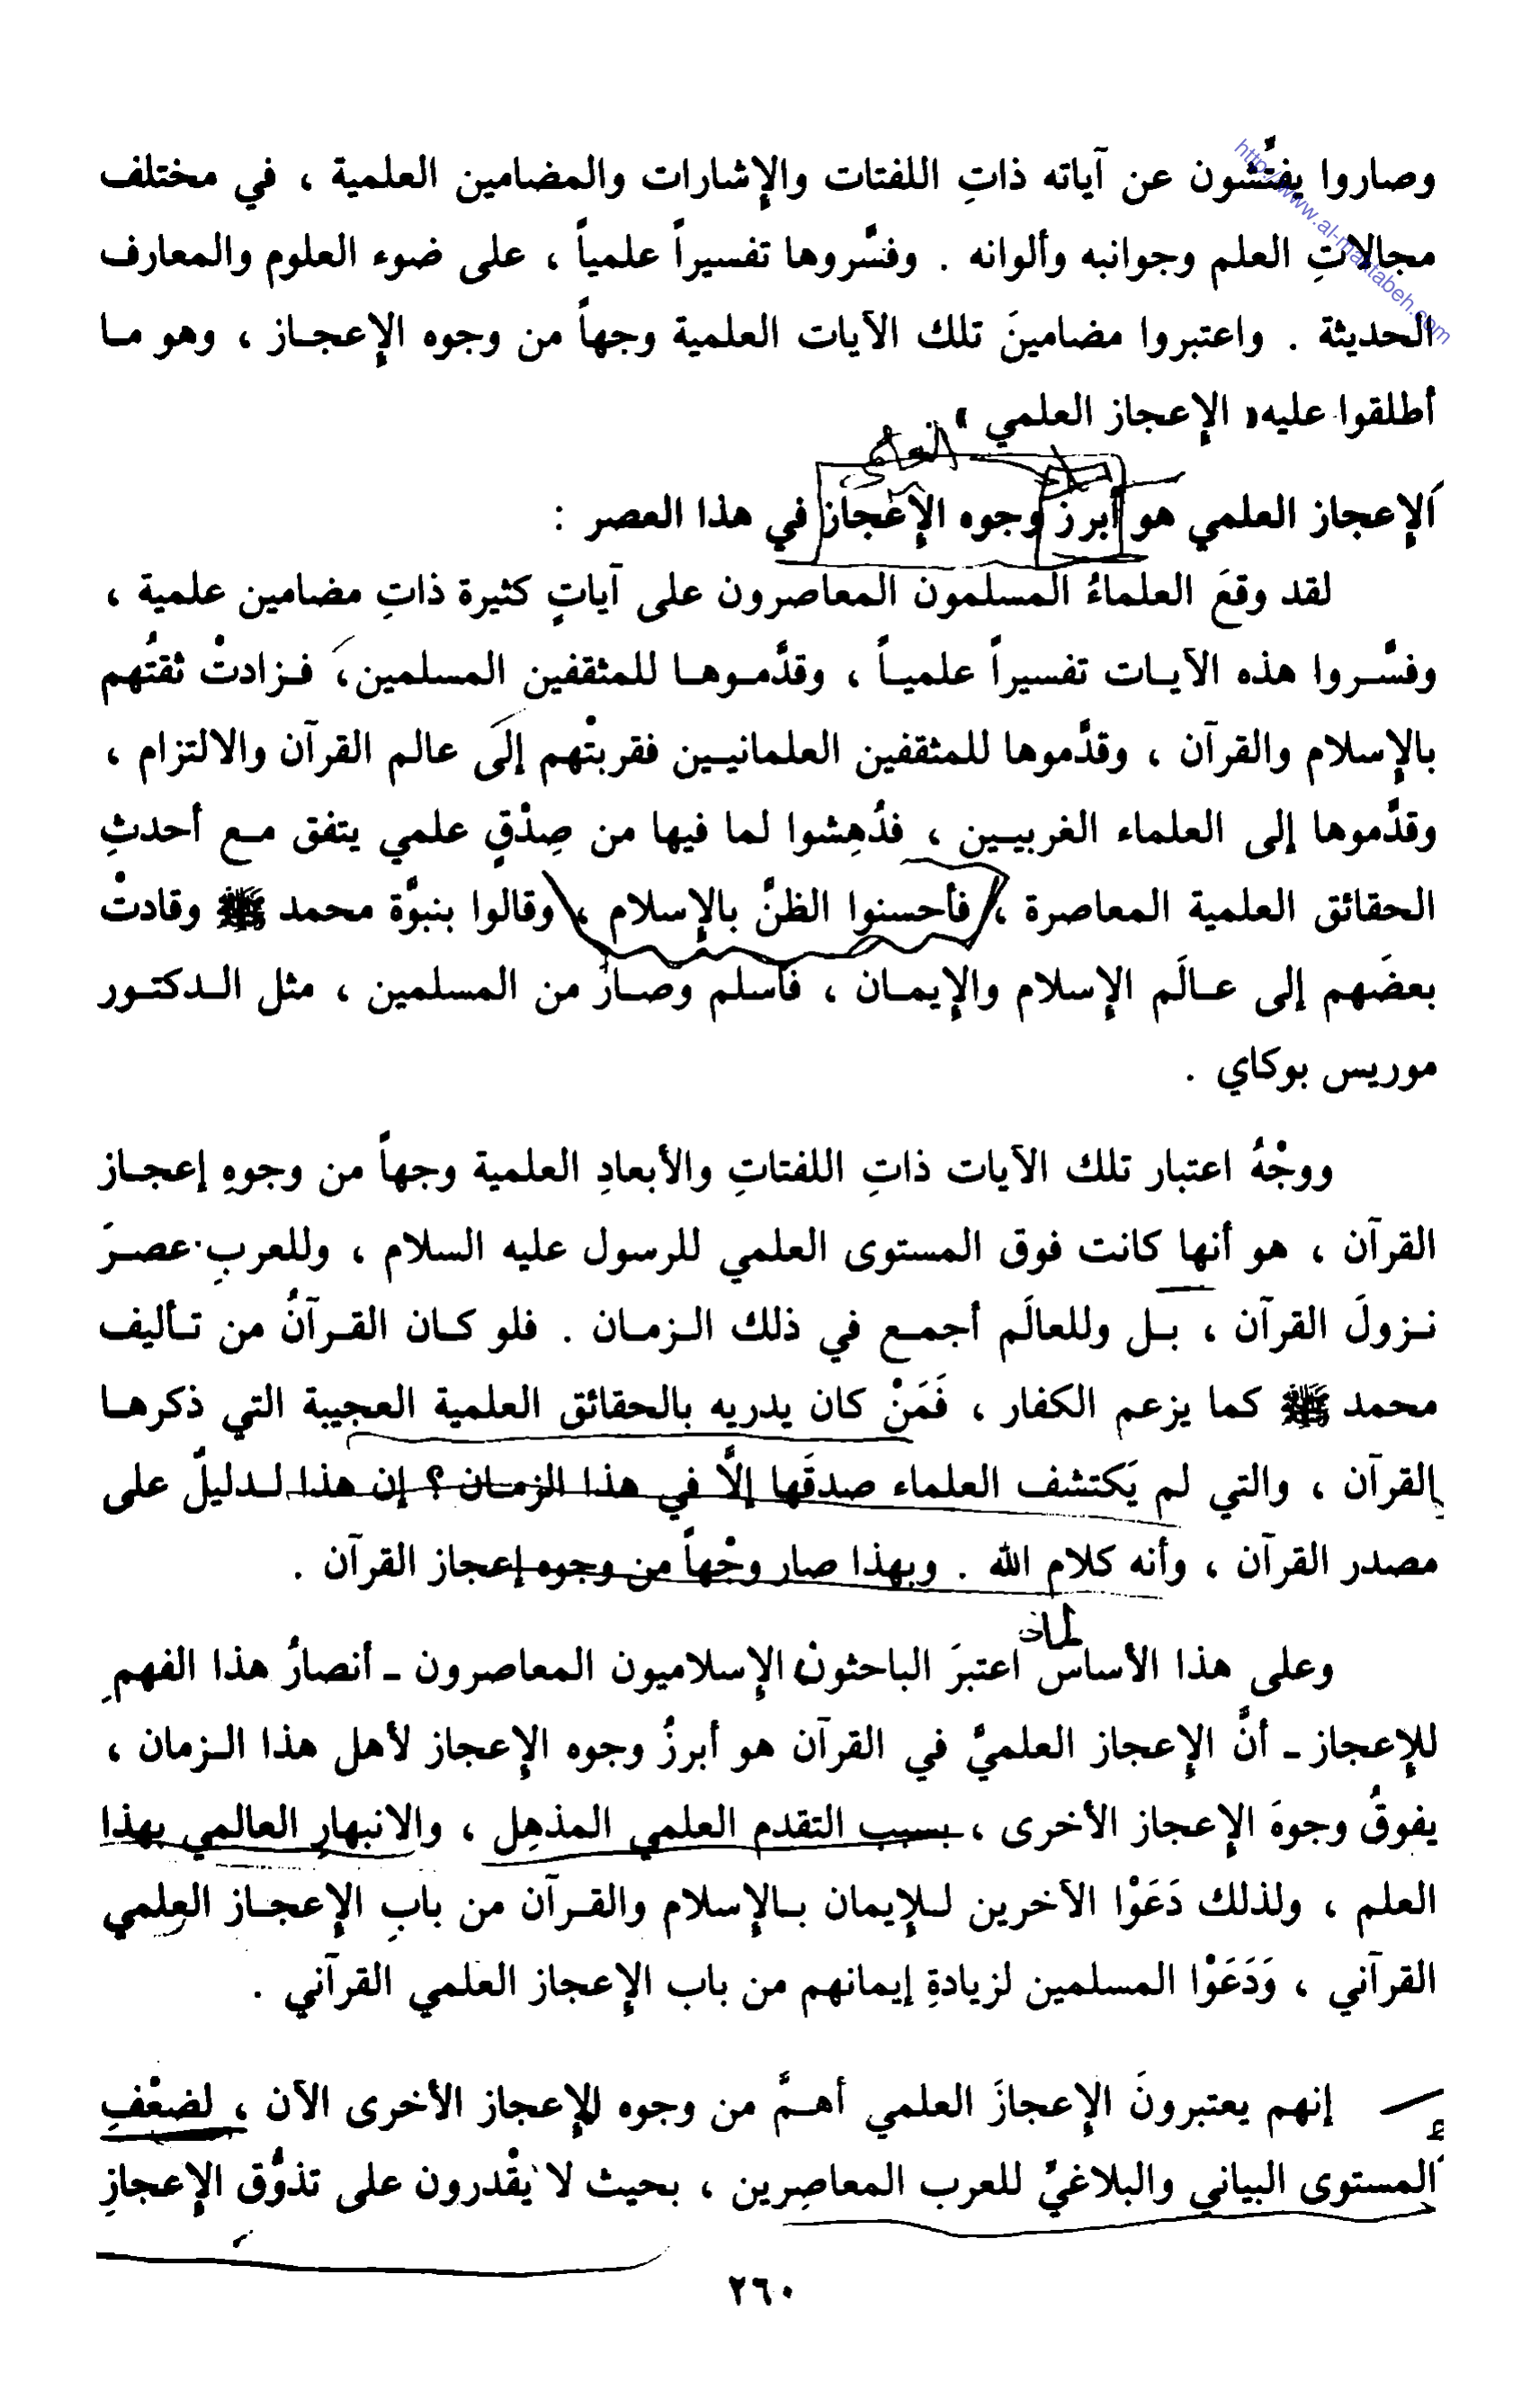 http://www.al-maktabeh.com
وصاروا يفتَّشون عن آياته ذاتِ اللفتات والإشارات والمضامين العلمية ، في مختلف
مجالاتِ العلم وجوانبه وألوانه . وفسَّروها تفسيراً علمياً ، على ضوء العلوم والمعارف
الحديثة . واعتبروا مضامينَ تلك الآيات العلمية وجهاً من وجوه الإعجـاز ، وهو مـا
أطلقوا عليه « الإعجاز العلمي » .
الإعجاز العلمي هو أبرز وجوه الإعجاز في هذا العصر :
لقد وقعَ العلماءُ المسلمون المعاصرون على آياتٍ كثيرة ذاتِ مضامين علمية ،
وفسَّـروا هذه الآيـات تفسيراً علميـاً ، وقدَّمـوهـا للمثقفين المسلمين ، فـزادتْ ثقتُهم
بالإسلام والقرآن ، وقدَّموها للمثقفين العلمانيـين فقربتْهم إلى عالم القرآن والالتزام ،
وقدَّموها إلى العلماء الغربيـين ، فدُهِشوا لما فيها من صِدْقٍ علمي يتفق مـع أحدثِ
الحقائق العلمية المعاصرة ، فأحسنوا الظنَّ بالإسلام ، وقالوا بنبوَّة محمد ﷺ وقادتْ
بعضَهم إلى عـالَم الإسلام والإيمـان ، فأسلم وصـارَ من المسلمين ، مثل الـدكتـور
موريس بوكاي .
ووجْهُ اعتبار تلك الآيات ذاتِ اللفتاتِ والأبعادِ العلمية وجهاً من وجوهِ إعجـاز
القرآن ، هو أنها كانت فوق المستوى العلمي للرسول عليه السلام ، وللعربِ عصـرَ
نـزولَ القرآن ، بـل وللعالَم أجمـع في ذلك الـزمـان . فلو كـان القـرآنُ من تـأليف
محمد ﷺ كما يزعم الكفار ، فَمَنْ كان يدريه بالحقائق العلمية العجيبة التي ذكرهـا
القرآن ، والتي لم يَكتشف العلماء صدقَها إلَّا في هذا الزمـان ؟ إن هذا لـدليلٌ على
مصدر القرآن ، وأنه كلام الله . وبهذا صار وجْهاً من وجوه إعجاز القرآن .
وعلى هذا الأساس اعتبرَ الباحثون الإسلاميون المعاصرون ـ أنصارُ هذا الفهم
للإعجاز ـ أنَّ الإعجاز العلميَّ في القرآن هو أبرزُ وجوه الإعجاز لأهل هذا الـزمان ،
يفوقُ وجوهَ الإعجاز الأخرى ، بسبب التقدم العلمي المذهِل ، والانبهارِ العالمي بهذا
العلم ، ولذلك دَعَوْا الآخرين لـلإيمان بـالإسلام والقـرآن من بابِ الإعجـاز العلمي
القرآني ، وَدَعَوْا المسلمين لزيادةِ إيمانهم من باب الإعجاز العلمي القرآني .
إنهم يعتبرونَ الإعجازَ العلمي أهـمَّ من وجوه الإعجاز الأخرى الآن ، لضعْفِ
المستوى البياني والبلاغيِّ للعرب المعاصِرين ، بحيث لا يقْدرون على تذوُّق الإعجازِ
٢٦٠